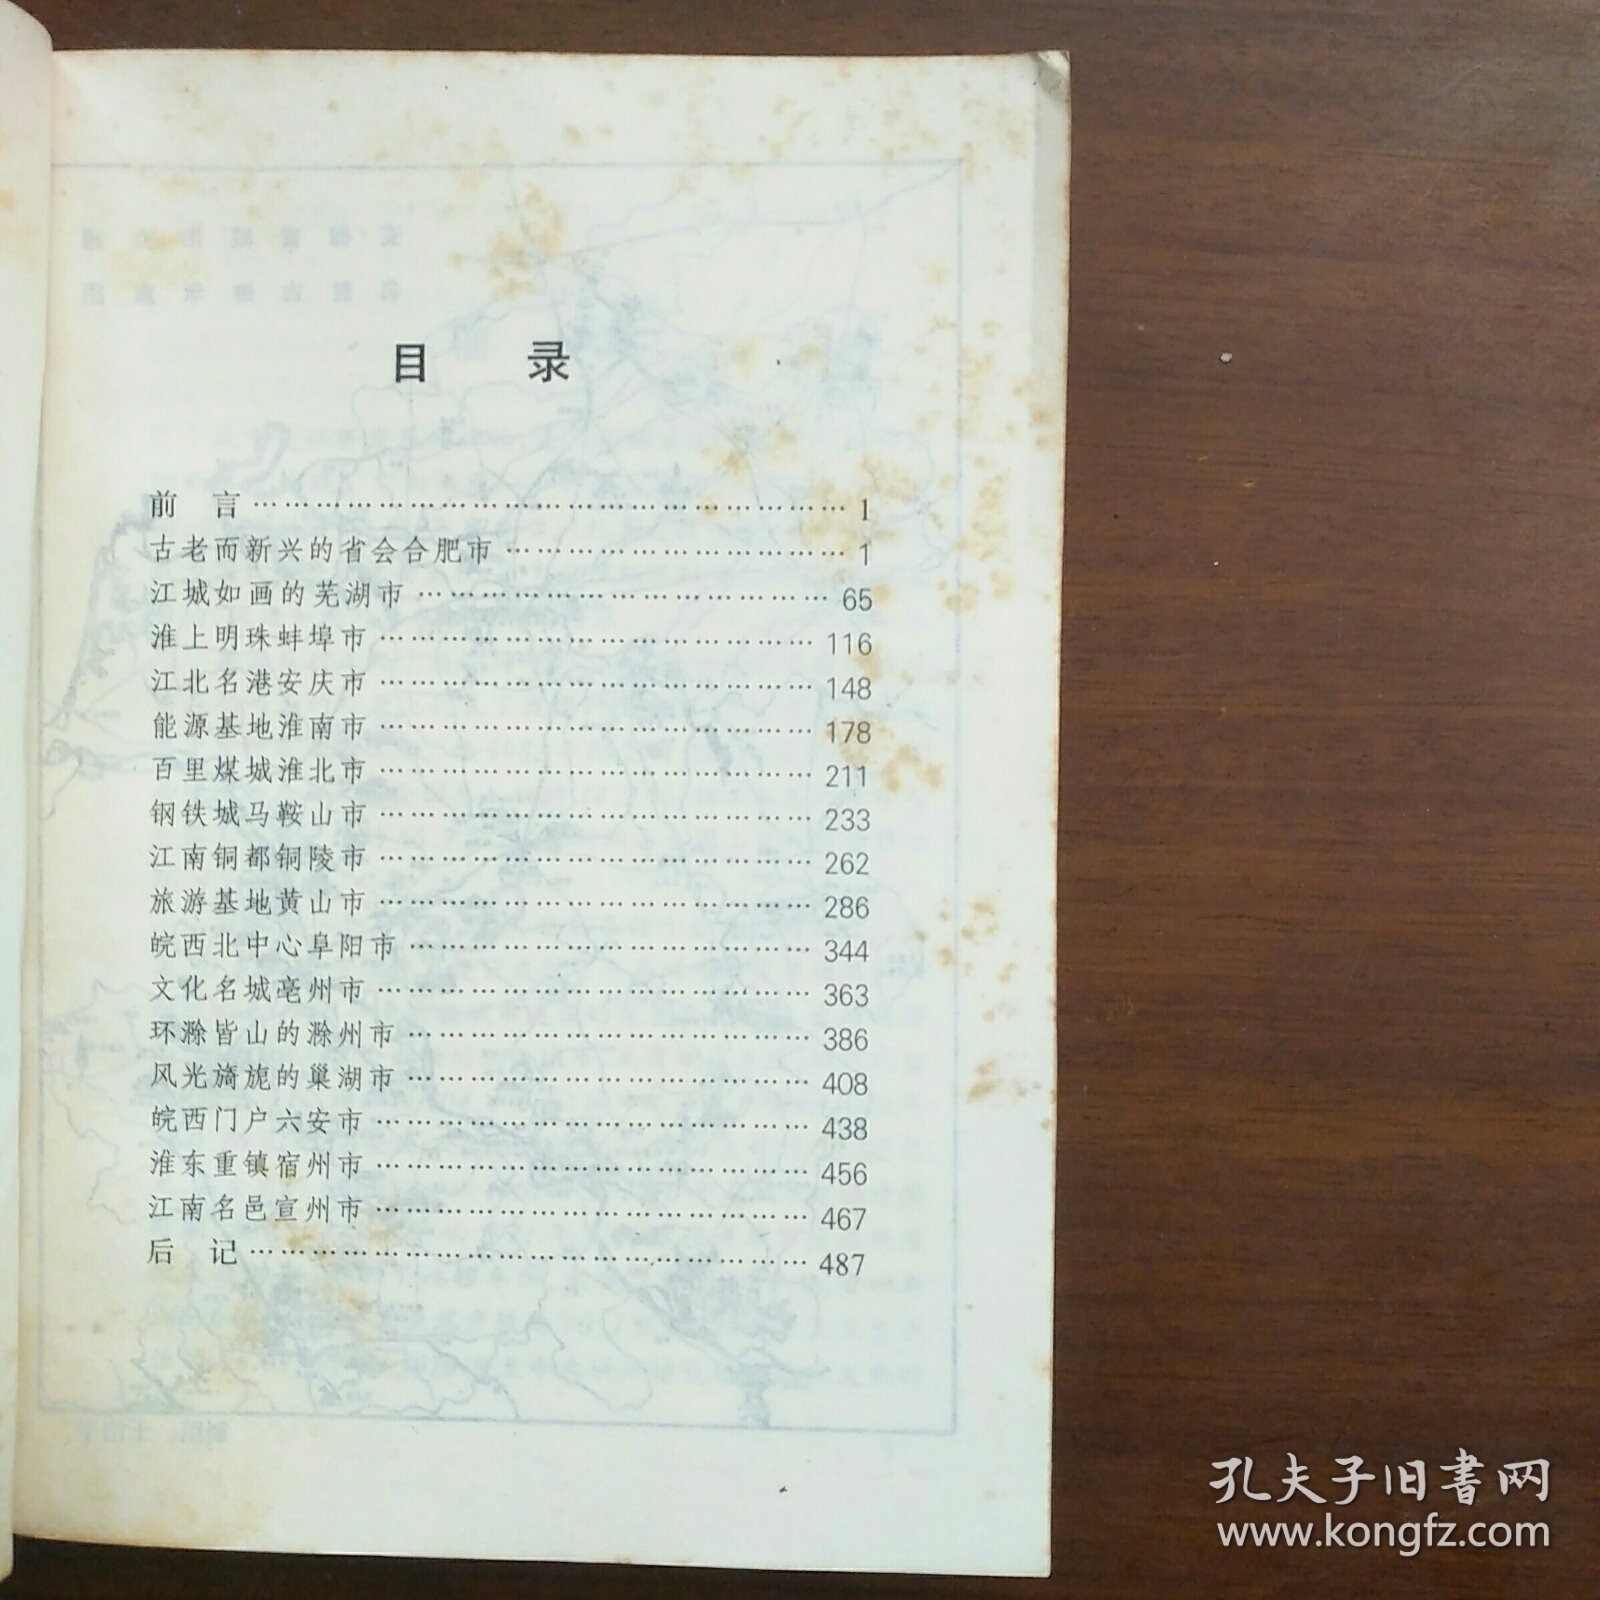 目 录
前 言 …………………………………………………… 1
古老而新兴的省会合肥市 …………………………… 1
江城如画的芜湖市 ………………………………… 65
淮上明珠蚌埠市 ………………………………… 116
江北名港安庆市 ………………………………… 148
能源基地淮南市 ………………………………… 178
百里煤城淮北市 ………………………………… 211
钢铁城马鞍山市 ………………………………… 233
江南铜都铜陵市 ………………………………… 262
旅游基地黄山市 ………………………………… 286
皖西北中心阜阳市 ……………………………… 344
文化名城亳州市 ………………………………… 363
环滁皆山的滁州市 ……………………………… 386
风光旖旎的巢湖市 ……………………………… 408
皖西门户六安市 ………………………………… 438
淮东重镇宿州市 ………………………………… 456
江南名邑宣州市 ………………………………… 467
后 记 …………………………………………… 487
孔夫子旧書网
www.kongfz.com